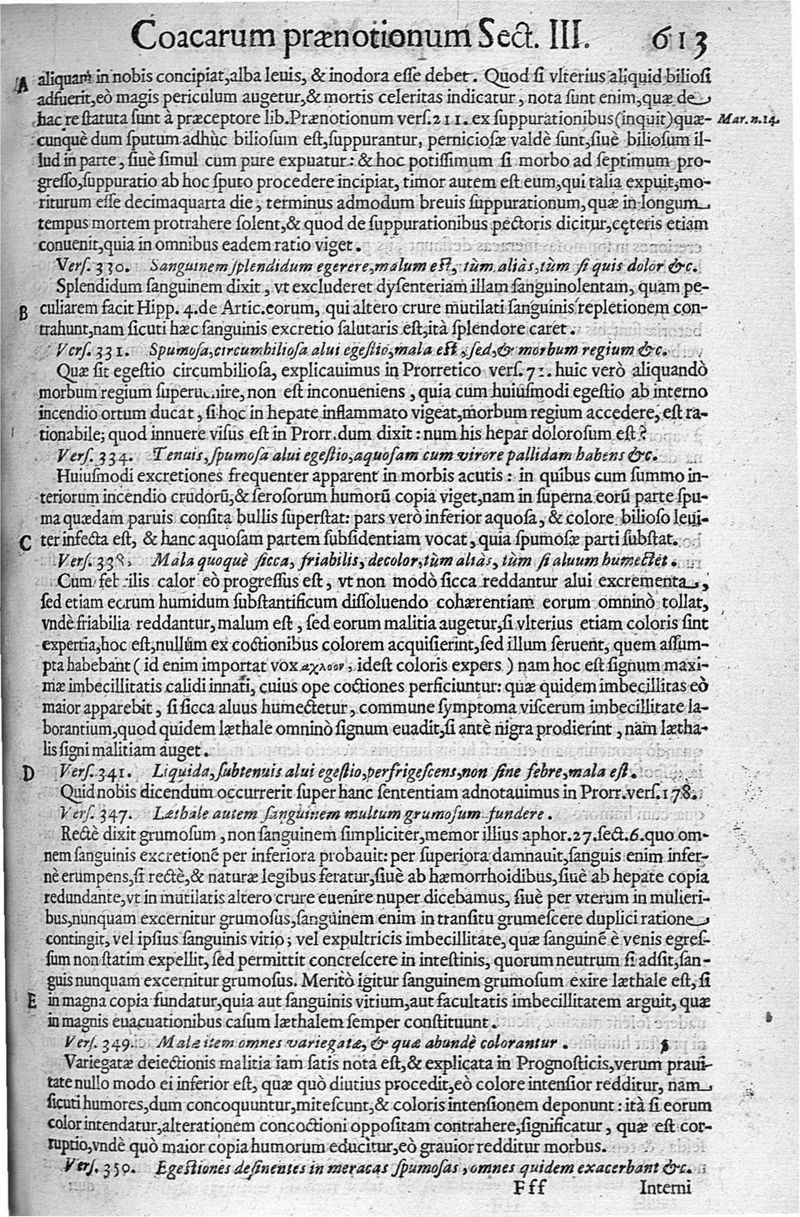 Coacarum prænotionum Sect. III. 613
A aliquam in nobis concipiat, alba leuis, & inodora esse debet. Quod si vlterius aliquid biliosi
adfuerit, eò magis periculum augetur, & mortis celeritas indicatur, nota sunt enim, quæ de
hac re statuta sunt à præceptore lib. Prænotionum vers. 211. ex suppurationibus (inquit) quæ- Mar. n. 14.
cunquè dum sputum adhùc biliosum est, suppurantur, perniciosæ valdè sunt, siuè biliosum il-
lud in parte, siuè simul cum pure expuatur: & hoc potissimum si morbo ad septimum pro-
gresso, suppuratio ab hoc sputo procedere incipiat, timor autem est eum, qui talia expuit, mo-
riturum esse decimaquarta die, terminus admodum breuis suppurationum, quæ in longum
tempus mortem protrahere solent, & quod de suppurationibus pectoris dicitur, cęteris etiam
conuenit, quia in omnibus eadem ratio viget.
Vers. 330. Sanguinem splendidum egerere, malum est, tùm aliàs, tùm si quis dolor &c.
Splendidum sanguinem dixit, vt excluderet dysenteriam illam sanguinolentam, quam pe-
B culiarem facit Hipp. 4. de Artic. eorum, qui altero crure mutilati sanguinis repletionem con-
trahunt, nam sicuti hæc sanguinis excretio salutaris est, ità splendore caret.
Vers. 331. Spumosa, circumbiliosa alui egestio, mala est, sed, & morbum regium &c.
Quæ sit egestio circumbiliosa, explicauimus in Prorretico vers. 71. huic verò aliquandò
morbum regium superuenire, non est inconueniens, quia cum huiusmodi egestio ab interno
incendio ortum ducat, si hoc in hepate inflammato vigeat, morbum regium accedere, est ra-
tionabile; quod innuere visus est in Prorr. dum dixit: num his hepar dolorosum est?
Vers. 334. Tenuis, spumosa alui egestio, aquosam cum virore pallidam habens &c.
Huiusmodi excretiones frequenter apparent in morbis acutis: in quibus cum summo in-
teriorum incendio crudorũ, & serosorum humorũ copia viget, nam in superna eorũ parte spu-
ma quædam paruis consita bullis superstat: pars verò inferior aquosa, & colore bilioso leui-
C ter infecta est, & hanc aquosam partem subsidentiam vocat, quia spumosæ parti substat.
Vers. 338. Mala quoquè sicca, friabilis, decolor, tùm aliàs, tùm si aluum humectet.
Cum febrilis calor eò progressus est, vt non modò sicca reddantur alui excrementa,
sed etiam eorum humidum substantificum dissoluendo cohærentiam eorum omninò tollat,
vndè friabilia reddantur, malum est, sed eorum malitia augetur, si vlterius etiam coloris sint
expertia, hoc est, nullum ex coctionibus colorem acquisierint, sed illum seruent, quem assum-
pta habebant (id enim importat vox αχλοον, idest coloris expers) nam hoc est signum maxi-
mæ imbecillitatis calidi innati, cuius ope coctiones perficiuntur: quæ quidem imbecillitas eò
maior apparebit, si sicca aluus humectetur, commune symptoma viscerum imbecillitate la-
borantium, quod quidem læthale omninò signum euadit, si antè nigra prodierint, nam lætha-
lis signi malitiam auget.
D Vers. 341. Liquida, subtenuis alui egestio, perfrigescens, non sine febre, mala est.
Quid nobis dicendum occurrerit super hanc sententiam adnotauimus in Prorr. vers. 178.
Vers. 347. Læthale autem sanguinem multum grumosum fundere.
Rectè dixit grumosum, non sanguinem simpliciter, memor illius aphor. 27. sect. 6. quo om-
nem sanguinis excretionẽ per inferiora probauit: per superiora damnauit, sanguis enim infer-
nè erumpens, si rectè, & naturæ legibus feratur, siuè ab hæmorrhoidibus, siuè ab hepate copia
redundante, vt in mutilatis altero crure euenire nuper dicebamus, siuè per vterum in mulieri-
bus, nunquam excernitur grumosus, sanguinem enim in transitu grumescere duplici ratione
contingit, vel ipsius sanguinis vitio; vel expultricis imbecillitate, quæ sanguinẽ è venis egres-
sum non statim expellit, sed permittit concrescere in intestinis, quorum neutrum si adsit, san-
guis nunquam excernitur grumosus. Meritò igitur sanguinem grumosum exire læthale est, si
E in magna copia fundatur, quia aut sanguinis vitium, aut facultatis imbecillitatem arguit, quæ
in magnis euacuationibus casum læthalem semper constituunt.
Vers. 349. Malæ item omnes variegatæ, & quæ abundè colorantur.
Variegatæ deiectionis malitia iam satis nota est, & explicata in Prognosticis, verum praui-
tate nullo modo ei inferior est, quæ quò diutius procedit, eò colore intensior redditur, nam
sicuti humores, dum concoquuntur, mitescunt, & coloris intensionem deponunt: ità si eorum
color intendatur, alterationem concoctioni oppositam contrahere, significatur, quæ est cor-
ruptio, vndè quò maior copia humorum educitur, eò grauior redditur morbus.
Vers. 350. Egestiones desinentes in meracas spumosas, omnes quidem exacerbant &c.
Fff Interni